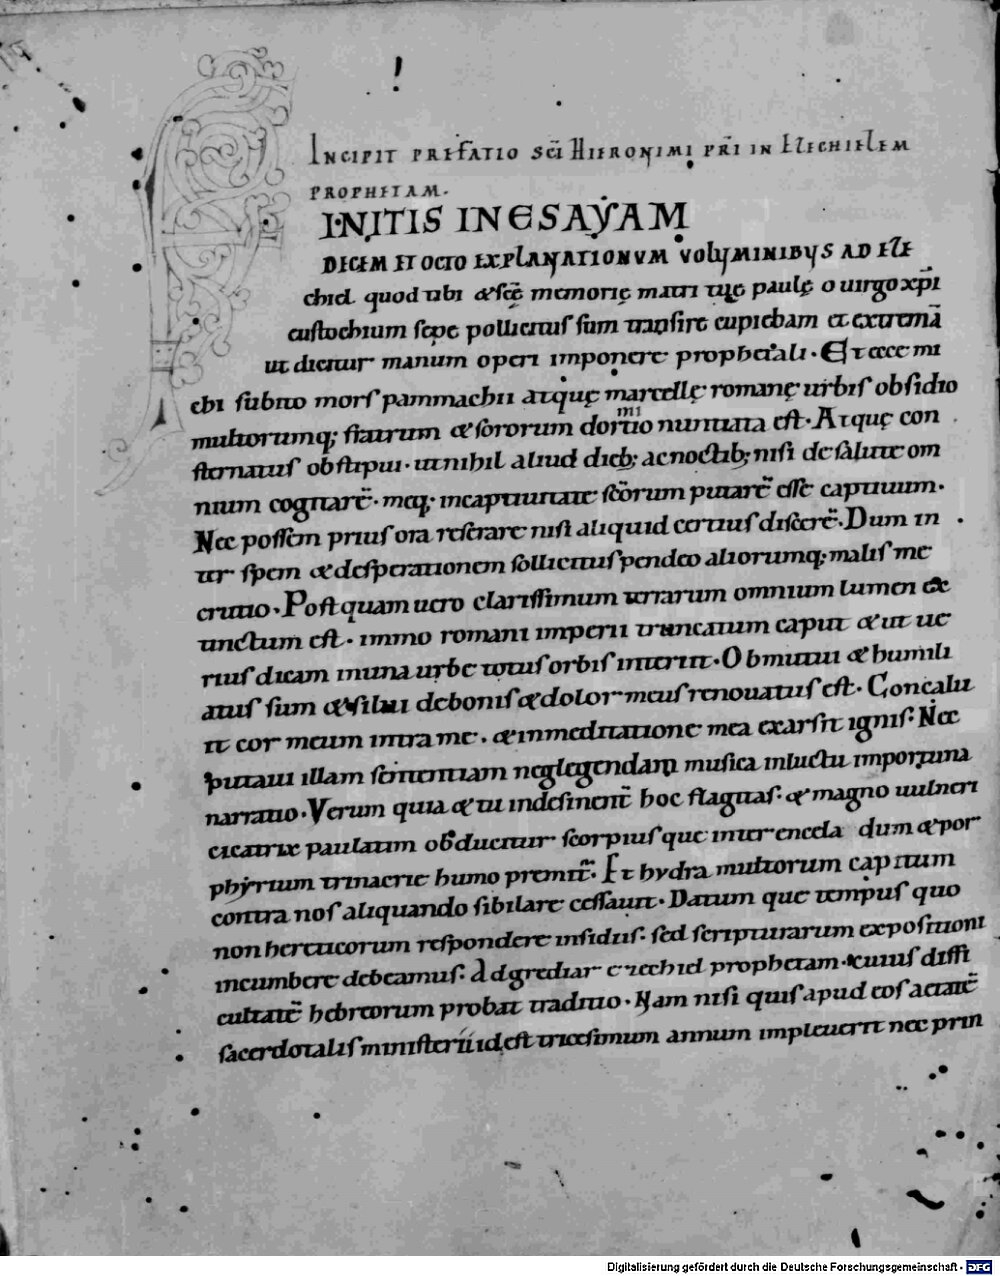 INCIPIT PREFATIO SC̄I HIERONIMI PR̄I IN IEZECHIELEM
PROPHETAM.
FINITIS IN ESAYAM
DECEM ET OCTO EXPLANATIONVM VOLUMINIBUS AD EZE
chiel quod tibi & sc̄ę memorię matri tuę paulę o uirgo xp̄i
eustochium sepe pollicitus sum transire cupiebam et extremā
ut dicitur manum operi imponere prophetali. Et ecce mi
chi subito mors pammachii atquę marcellę romanę urbis obsidio
multorumq; fratrum & sororum dormitio nuntiata est. Atquę con
sternatus obstipui. ut nihil aliud dieb; ac noctib; nisi de salute om
nium cogitarē. meq; in captiuitate sc̄orum putarē esse captiuum.
Nec possem prius ora reserare nisi aliquid certius discerē. Dum in
ter spem & desperationem sollicitus pendeo aliorumq; malis me
crucio. Postquam uero clarissimum terrarum omnium lumen ex
tinctum est. immo romani imperii truncatum caput & ut ue
rius dicam in una urbe totus orbis interiit. Obmutui & humili
atus sum & silui de bonis & dolor meus renouatus est. Concalu
it cor meum intra me. & in meditatione mea exarsit ignis. Nec
putaui illam sententiam neglegendam musica in luctu importuna
narratio. Verum quia & tu indesinent̄ hoc flagitas. & magno uulneri
cicatrix paulatim obducitur scorpius que inter encela dum & por
phyrium trinacrie humo premit̄. Et hydra multorum capitum
contra nos aliquando sibilare cessauit. Datum que tempus quo
non hereticorum respondere insidiis. sed scripturarum expositioni
incumbere debeamus. Adgrediar ezechiel prophetam. cuius diffi
cultatē hebreorum probat traditio. Nam nisi quis apud eos aetatē
sacerdotalis ministerii id est tricesimum annum impleuerit nec prin
Digitalisierung gefördert durch die Deutsche Forschungsgemeinschaft - DFG